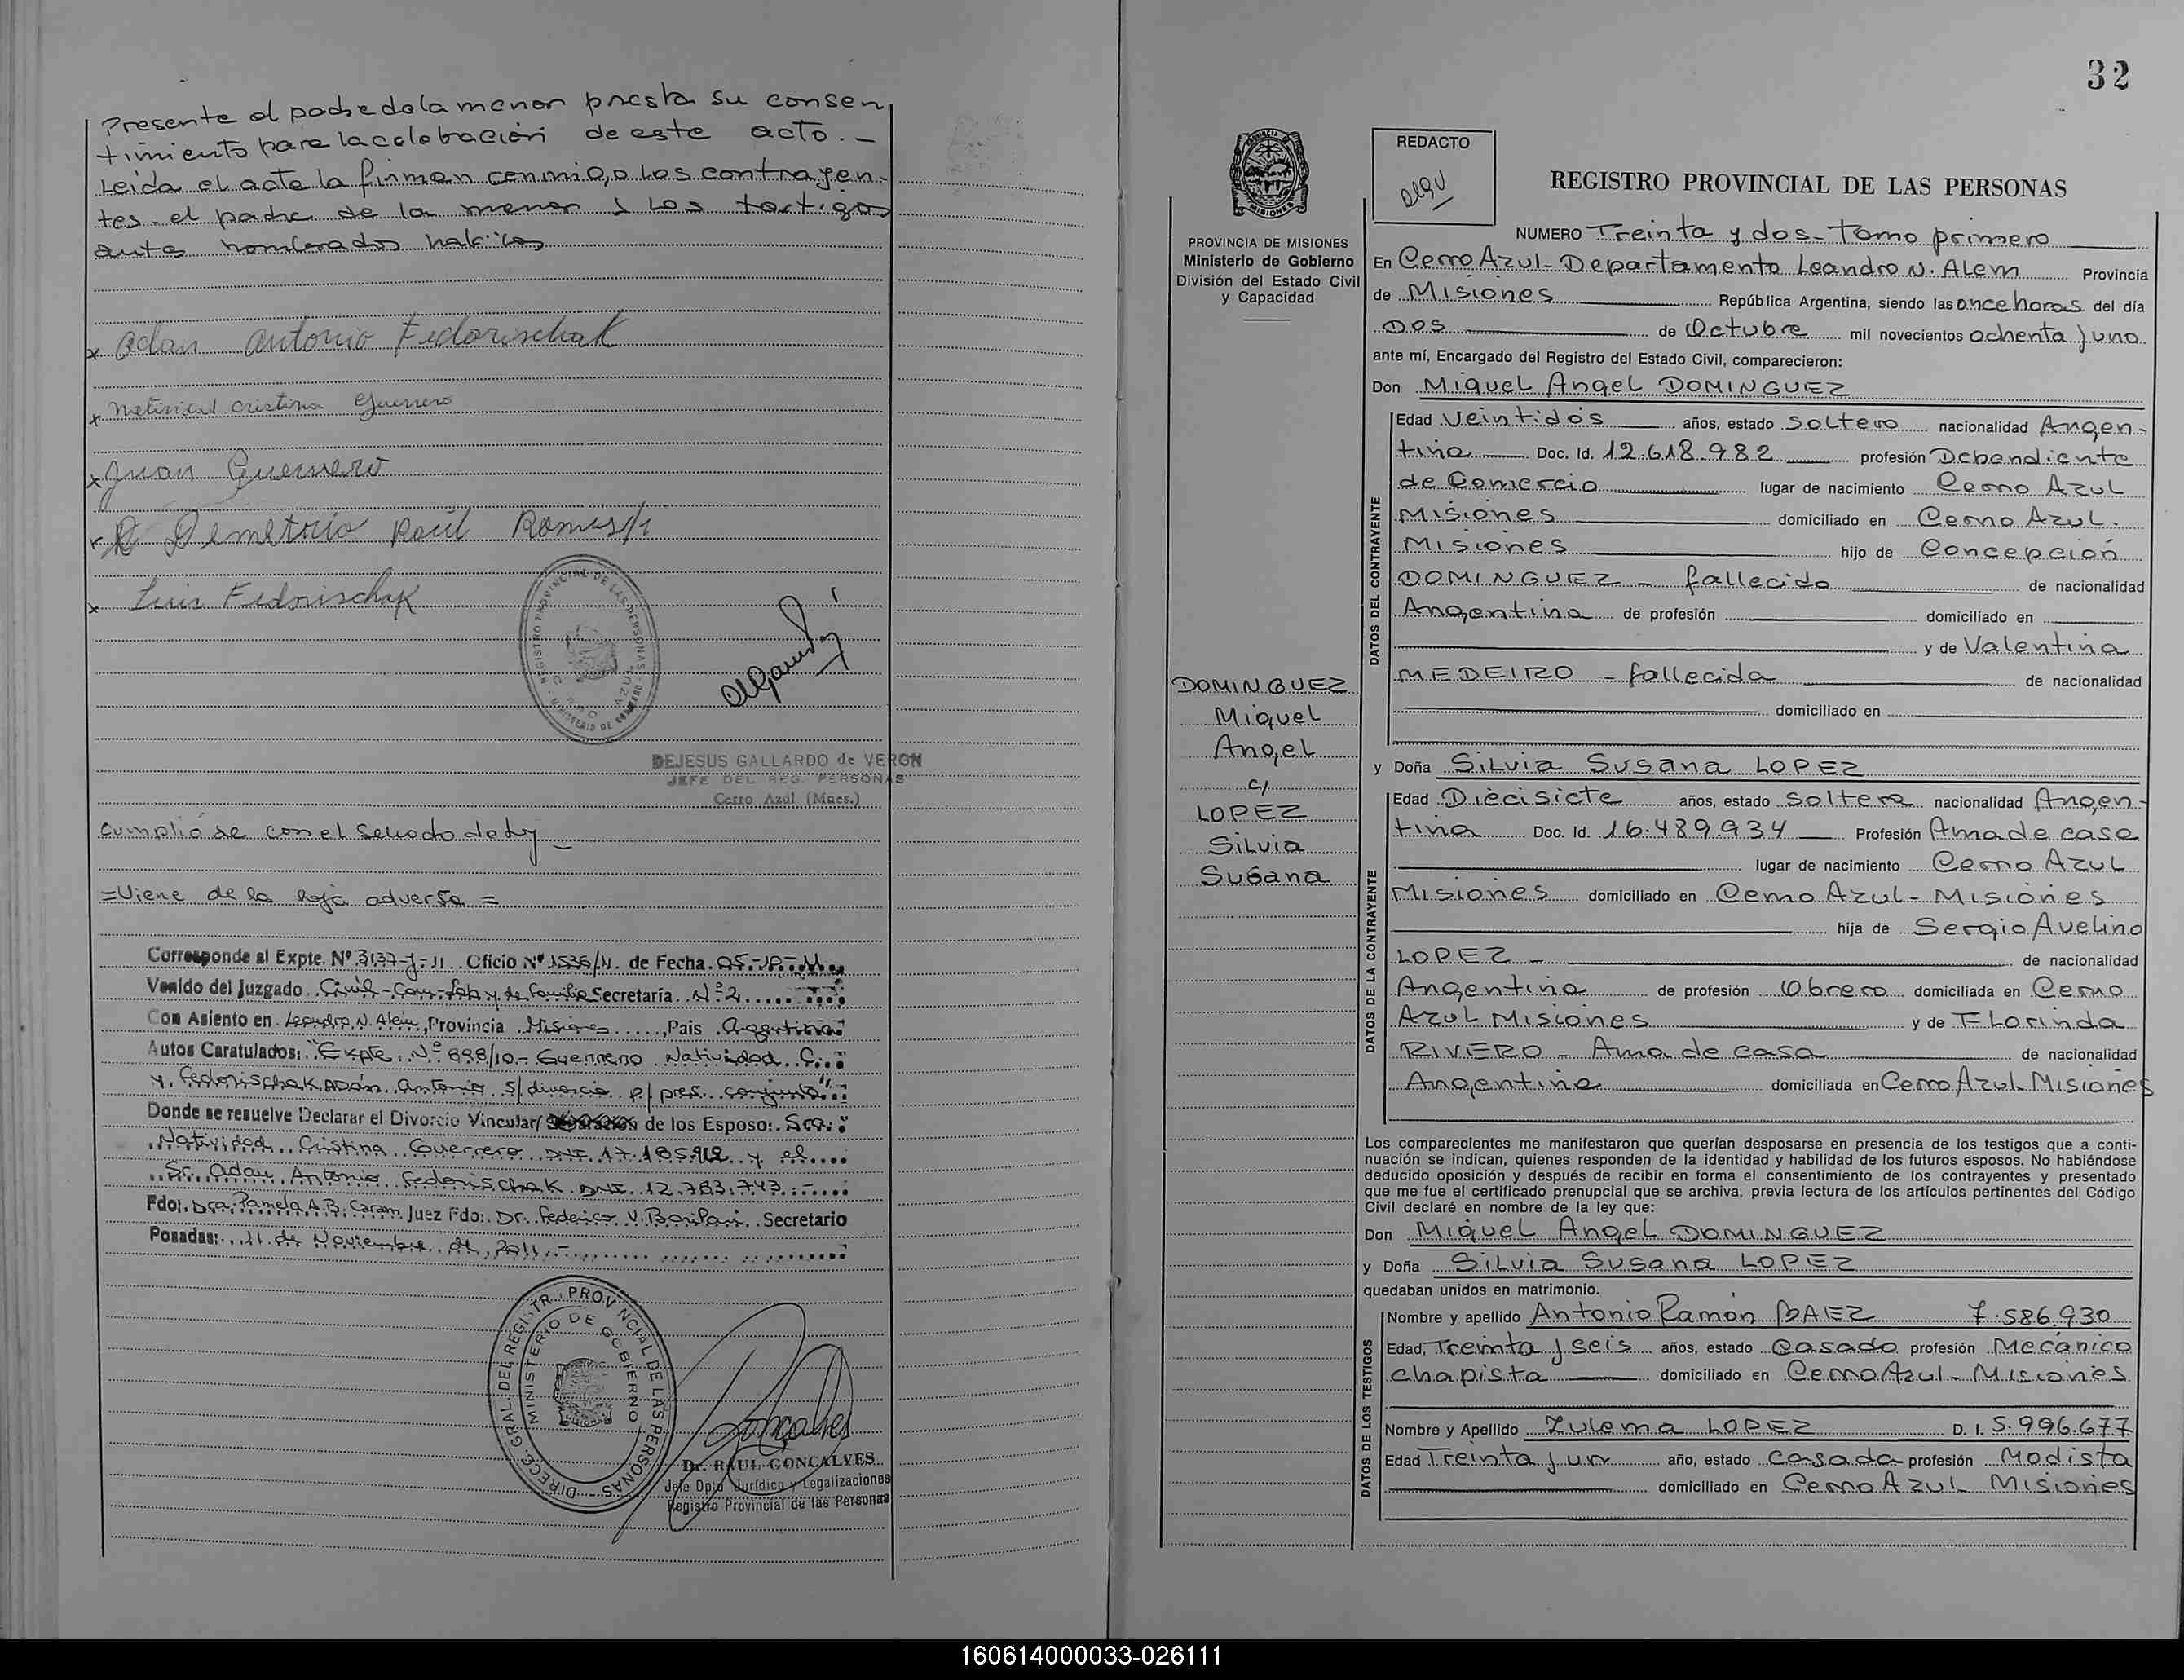 Presente el padre de la menor presta su consen
timiento para la celebración de este acto. -
Leida el acta la firman conmigo los contrayen-
tes - el padre de la menor y los testigos
antes nombrados
x Adan Antonio Fedorischak
x Natividad Cristina Guerrero
x Juan Guerrero
x Demetrio Raúl
x Luis Fedorischak
REGISTRO PROVINCIAL DE LAS PERSONAS - MINISTERIO DE GOBIERNO
DEJESUS GALLARDO de VERON
JEFE DEL REG. PERSONAS
Cerro Azul (Mnes.)
Cumplióse con el Sellado de ley -
=Viene de la hoja adversa =
Corresponde al Expte. Nº 3137-J-11 Oficio Nº 1536/11 de Fecha. 05-10-11
Venido del Juzgado Civil-Com-Lab y de Familia Secretaría Nº 2
Con Asiento en Leandro N. Alem, Provincia Misiones, Pais Argentina
Autos Caratulados: "Expte. Nº 898/10 - Guerrero Natividad C.
y Fedorischak Adán Antonio s/ divorcio p/ pres. conjunta"
Donde se resuelve Declarar el Divorcio Vincular/ de los Esposo: Sra.
Natividad Cristina Guerrero DNI. 17.185.912 y el
Sr. Adan Antonio Fedorischak DNI. 12.783.743.-
Fdo: Dra. Pamela A.B. Caram Juez Fdo: Dr. Federico V. Secretario
Posadas: 11 de Noviembre de 2011.-
DIRECC. GRAL. DEL REGISTR. PROVINCIAL DE LAS PERSONAS
MINISTERIO DE GOBIERNO
Dr. RAUL GONCALVES
Jefe Dpto Jurídico y Legalizaciones
Registro Provincial de las Personas
32
REDACTO
PROVINCIA DE MISIONES
Ministerio de Gobierno
División del Estado Civil
y Capacidad
DOMINGUEZ
Miguel
Angel
c/
LOPEZ
Silvia
Susana
REGISTRO PROVINCIAL DE LAS PERSONAS
NUMERO Treinta y dos - Tomo primero
En Cerro Azul - Departamento Leandro N. Alem Provincia
de Misiones República Argentina, siendo las once horas del día
Dos de Octubre mil novecientos ochenta y uno
ante mí, Encargado del Registro del Estado Civil, comparecieron:
Don Miguel Angel DOMINGUEZ
DATOS DEL CONTRAYENTE
Edad Veintidós años, estado Soltero nacionalidad Argen-
tina Doc. Id. 12.618.982 profesión Dependiente
de Comercio lugar de nacimiento Cerro Azul
Misiones domiciliado en Cerro Azul.
Misiones hijo de Concepción
DOMINGUEZ - fallecido de nacionalidad
Argentina de profesión domiciliado en
y de Valentina
MEDEIRO - fallecida de nacionalidad
domiciliado en
y Doña Silvia Susana LOPEZ
DATOS DE LA CONTRAYENTE
Edad Diecisiete años, estado Soltera nacionalidad Argen-
tina Doc. Id. 16.489.934 Profesión Ama de casa
lugar de nacimiento Cerro Azul
Misiones domiciliado en Cerro Azul - Misiones
hija de Sergio Avelino
LOPEZ - de nacionalidad
Argentina de profesión Obrero domiciliada en Cerro
Azul Misiones y de Florinda
RIVERO - Ama de casa de nacionalidad
Argentina domiciliada en Cerro Azul Misiones
Los comparecientes me manifestaron que querían desposarse en presencia de los testigos que a conti-
nuación se indican, quienes responden de la identidad y habilidad de los futuros esposos. No habiéndose
deducido oposición y después de recibir en forma el consentimiento de los contrayentes y presentado
que me fue el certificado prenupcial que se archiva, previa lectura de los artículos pertinentes del Código
Civil declaré en nombre de la ley que:
Don Miguel Angel DOMINGUEZ
y Doña Silvia Susana LOPEZ
quedaban unidos en matrimonio.
DATOS DE LOS TESTIGOS
Nombre y apellido Antonio Ramón BAEZ 7.586.930
Edad, Treinta y seis años, estado Casado profesión Mecánico
chapista domiciliado en Cerro Azul - Misiones
Nombre y Apellido Zulema LOPEZ D. I. 5.996.677
Edad Treinta y un año, estado casada profesión Modista
domiciliado en Cerro Azul Misiones
160614000033-026111